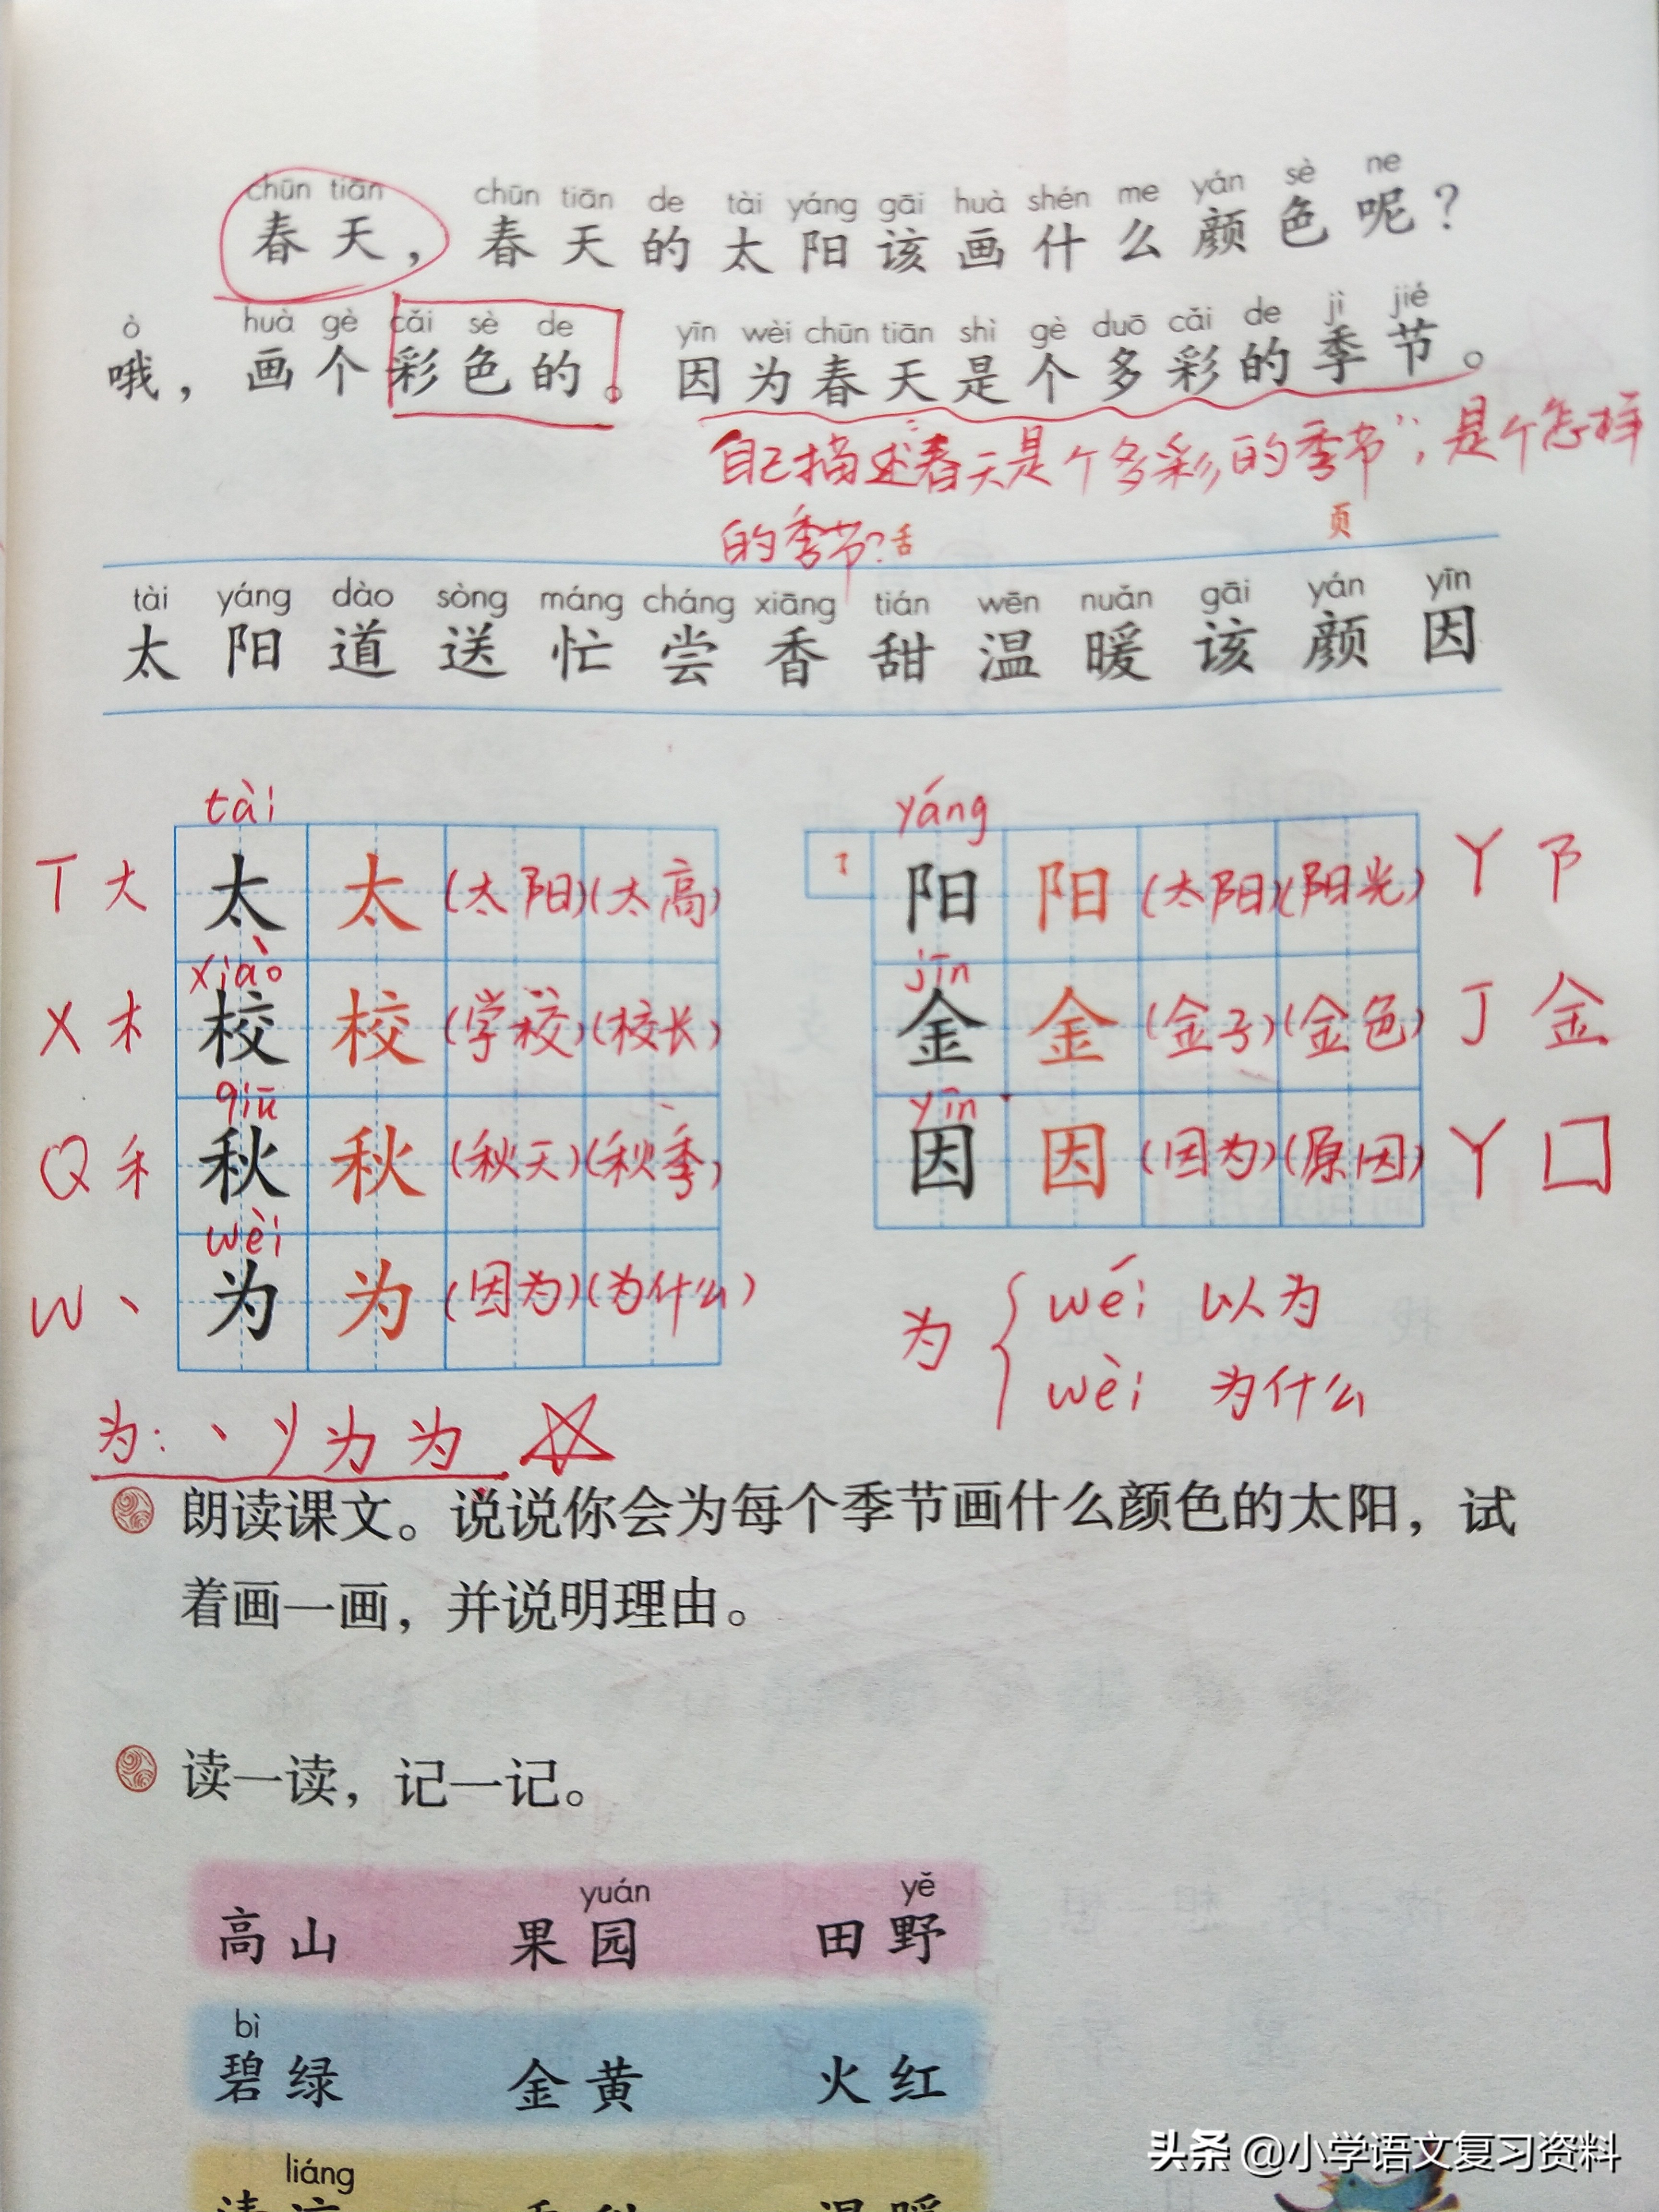 chūn tiān chūn tiān de tài yáng gāi huà shén me yán sè ne
春天，春天的太阳该画什么颜色呢？
ò huà gè cǎi sè de yīn wèi chūn tiān shì gè duō cǎi de jì jié
哦，画个彩色的。因为春天是个多彩的季节。
自己描述“春天是个多彩的季节”，是个怎样
的季节？
舌 页
tài yáng dào sòng máng cháng xiāng tián wēn nuǎn gāi yán yīn
太 阳 道 送 忙 尝 香 甜 温 暖 该 颜 因
tài
T 大 太 太 (太阳)(太高)
xiào
X 木 校 校 (学校)(校长)
qiū
Q 禾 秋 秋 (秋天)(秋季)
wèi
W 丶 为 为 (因为)(为什么)
yáng
阳 阳 (太阳)(阳光) Y 阝
jīn
金 金 (金子)(金色) J 金
yīn
因 因 (因为)(原因) Y 囗
为 wéi 以为
wèi 为什么
为：丶 丷 为 为
朗读课文。说说你会为每个季节画什么颜色的太阳，试
着画一画，并说明理由。
读一读，记一记。
yuán yě
高山 果园 田野
bì
碧绿 金黄 火红
liáng
头条 @小学语文复习资料